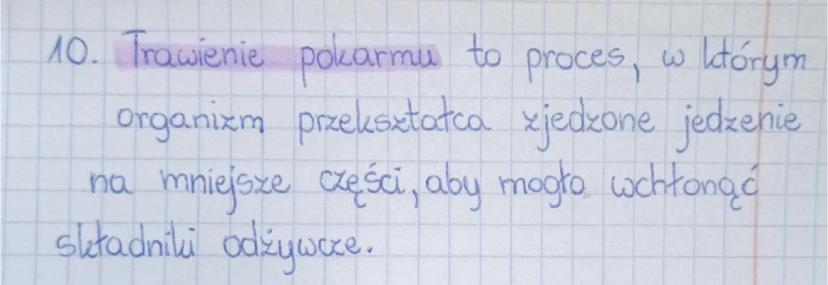 10. Trawienie pokarmu to proces, w którym
organizm przekształca zjedzone jedzenie
na mniejsze części, aby mogło wchłonąć
składniki odżywcze.